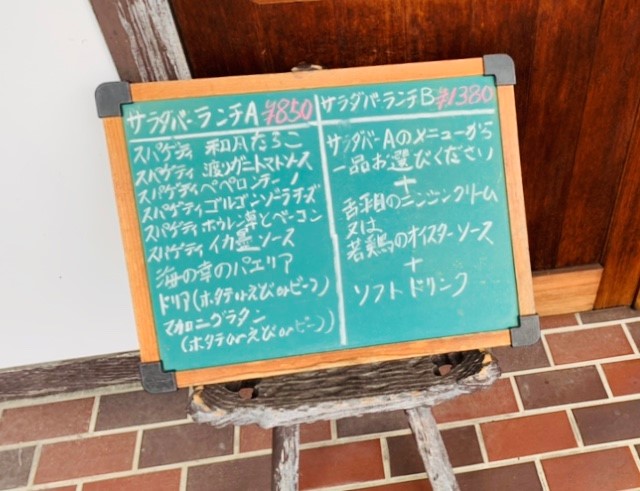 サラダバーランチA ¥850
スパゲティ 和風たらこ
スパゲティ 渡りガニトマトソース
スパゲティ ペペロンチーノ
スパゲティ ゴルゴンゾーラチーズ
スパゲティ ホウレン草とベーコン
スパゲティ イカ墨ソース
海の幸のパエリア
ドリア(ホタテorえびorビーフ)
マカロニグラタン
(ホタテorえびorビーフ)
サラダバーランチB ¥1380
サラダバーAのメニューから
一品お選びください
+
舌平目のクリーム
又は
若鶏のオイスターソース
+
ソフトドリンク